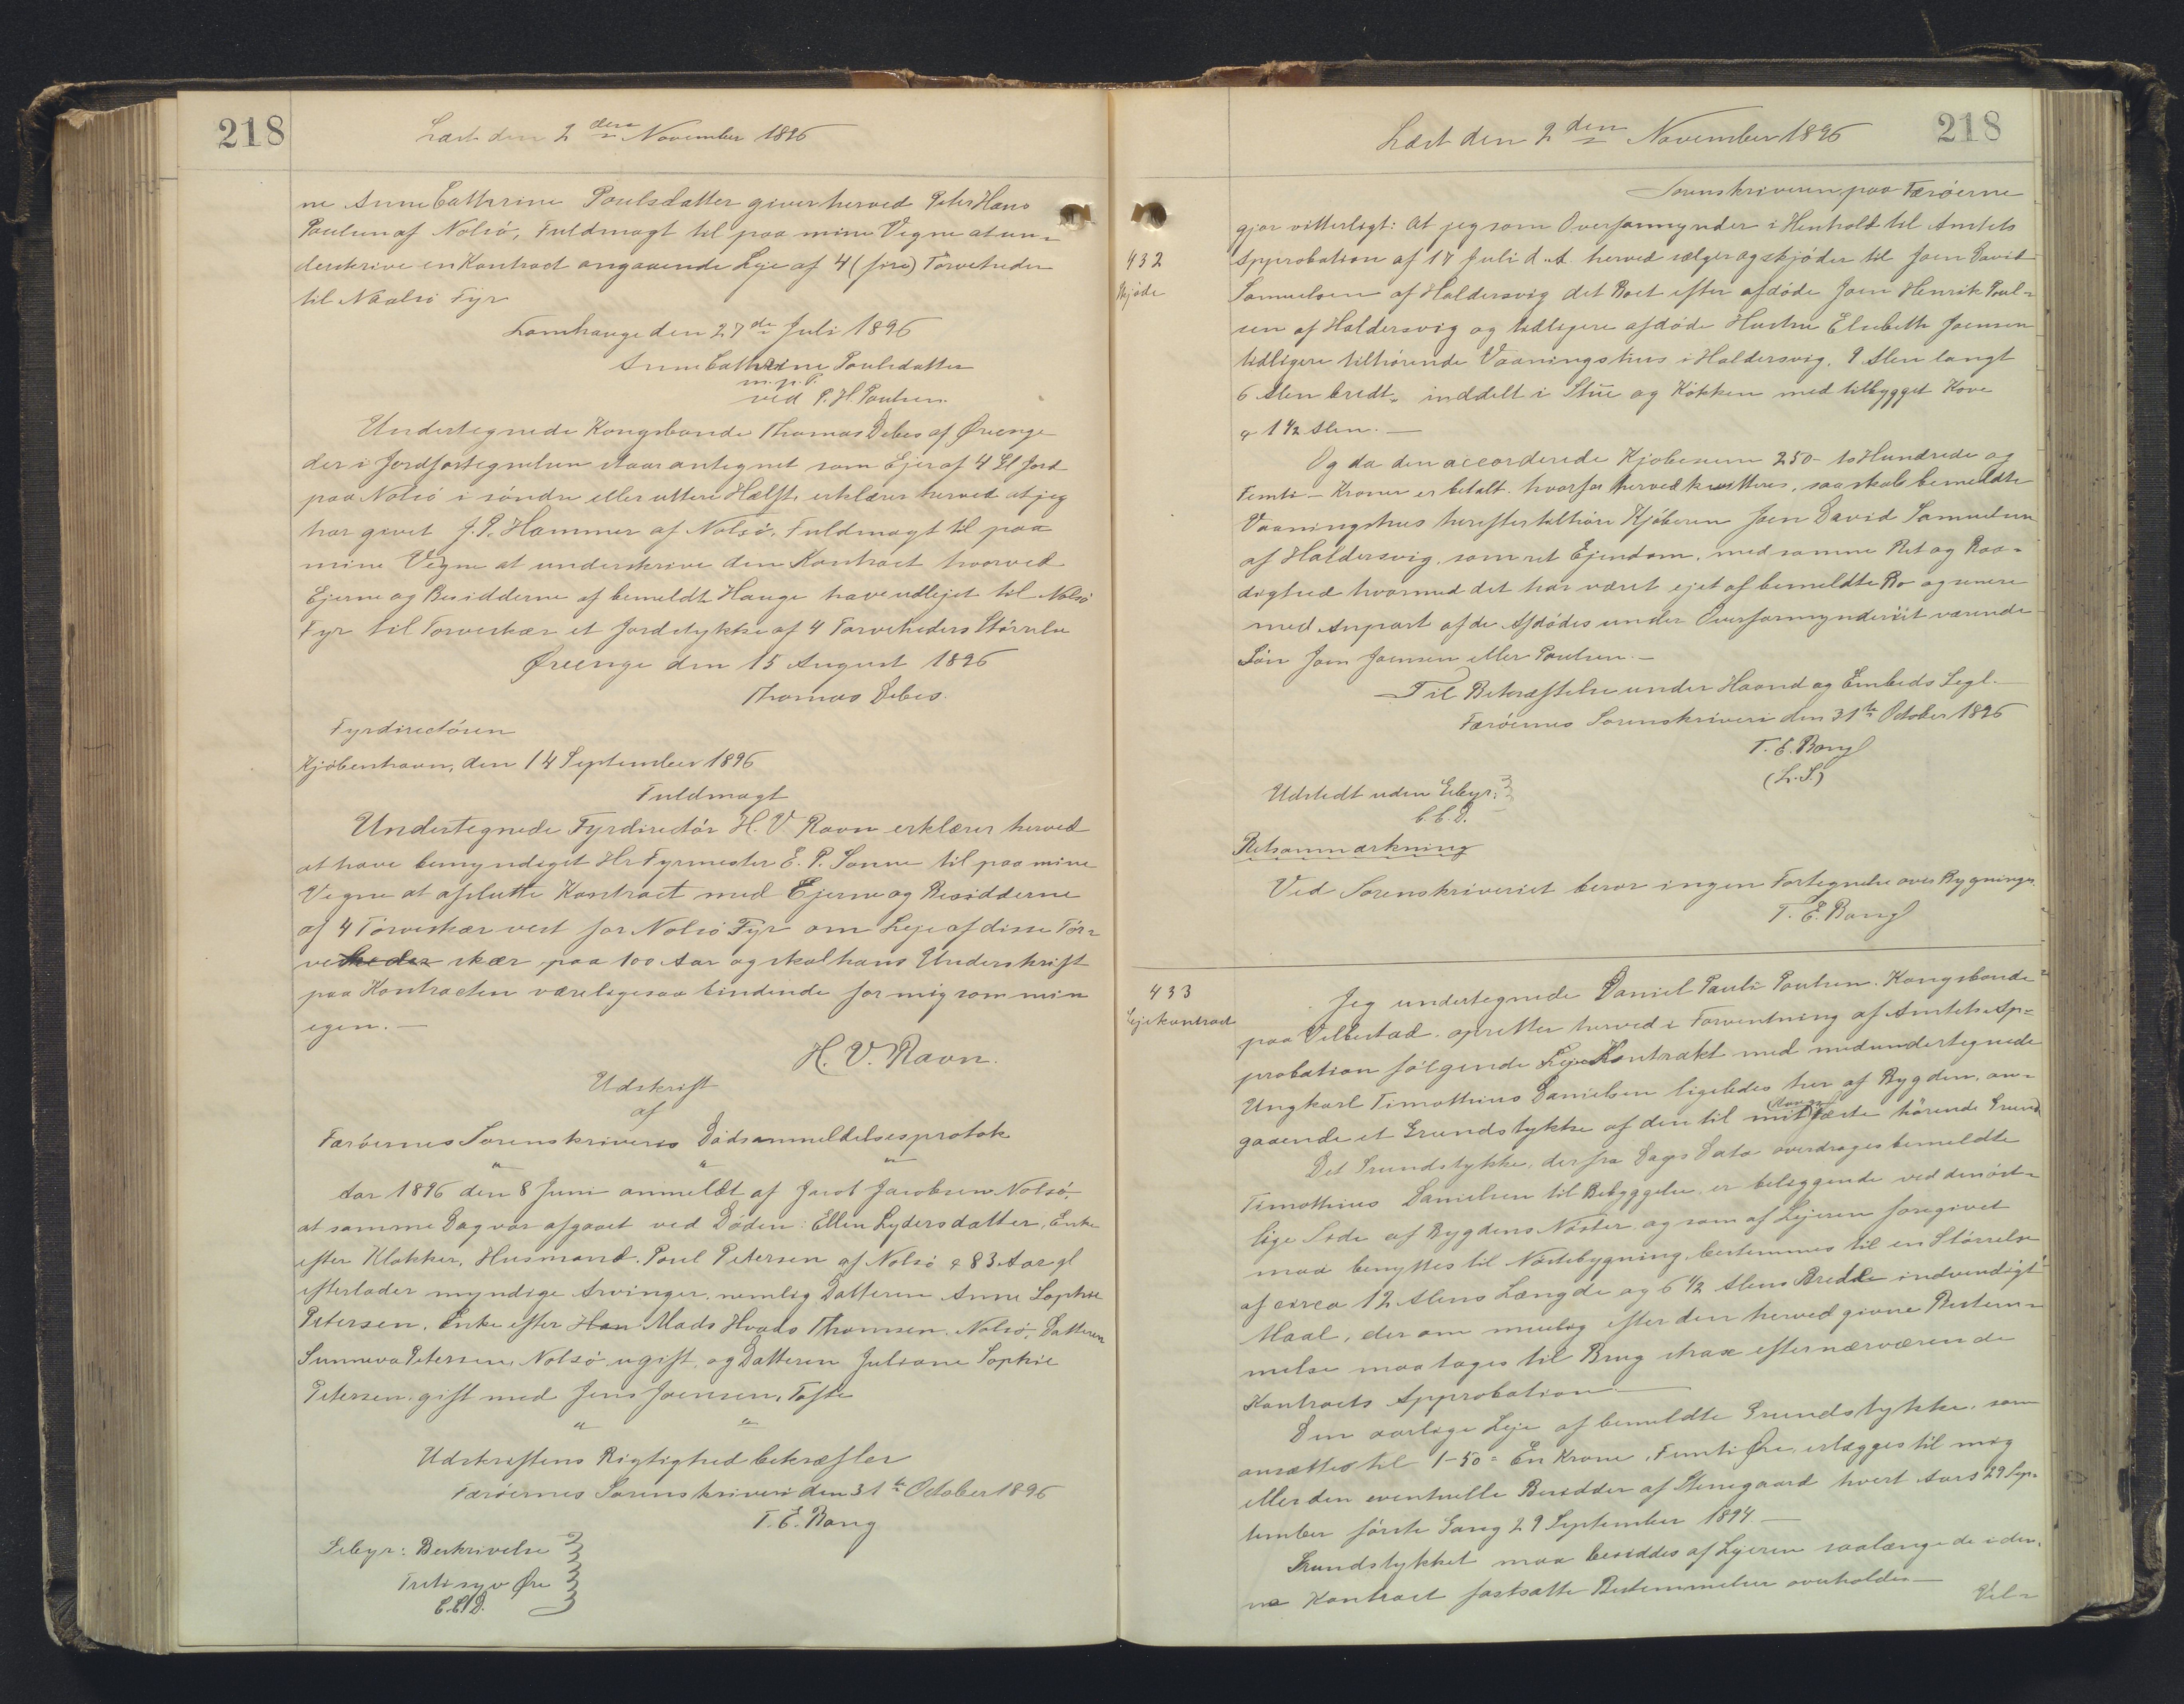 218
Læst den 2den November 1896
ne Anne Cathrine Poulsdatter giver herved Peter Hans
Poulsen af Nolsö, Fuldmagt til paa mine Vegne at un=
derskrive en Kontract angaaende Leje af 4 (fire) Törveheder
til Naalsö Fyr
Lamhauge den 27de Juli 1896
Anne Cathrine Poulsdatter
m.p.P.
ved P. H. Poulsen.
Undertegnede Kongsbonde Thomas Debes af Öreenge
der i Jordfortegnelsen staar antegnet som Ejer af 4 Gl Jord
paa Nolsö i söndre eller uttere Hælfte erklærer herved at jeg
har givet J. P. Hammer af Nolsö, Fuldmagt til paa
mine Vegne at underskrive den Kontract hvorved
Ejerne og Besidderne af bemeldte Hauge have udlejet til Nolsö
Fyr til Torveskær et Jordstykke af 4 Torveheders Störrelse
Öreenge den 15 August 1896
Thomas Debes.
Fyrdirectören
Kjöbenhavn, den 14 September 1896
Fuldmagt
Undertegnede Fyrdirectör H. V Ravn erklærer herved
at have bemyndiget Hr Fyrmester E. P. Sonne til paa mine
Vegne at afslutte Kontract med Ejerne og Besidderne
af 4 Törveskær vest for Nolsö Fyr om Leje af disse Tör=
veheder skær paa 100 Aar og skal hans Underskrift
paa Kontracten være ligesaa bindende for mig som min
egen.—
H. V. Ravn.
Udskrift
af
Færöernes Sorenskriveris Dödsanmeldelsesprotok
" " "
Aar 1896 den 8 Juni anmeldt af Jacob Jacobsen Nolsö,
at samme Dag var afgaaet ved Döden: Ellen Lydersdatter, Enke
efter Klokker, Husmand. Poul Petersen af Nolsö & 83 Aar gl
efterlader myndige Arvinger, nemlig Datteren Anne Sophie
Petersen. Enke efter Han Mads Thomsen. Nolsö, Datteren
Sunneva Petersen, Nolsö ugift, og Datteren Juliane Sophie
Petersen, gift med Jens Joensen, Tofte
" "
Udskriftens Rigtighed bekræfter
Færöernes Sorenskriveri den 31te October 1896
T. E. Bang
Gebyr: Beskrivelse
Tretisyv Øre
C.C.D.
Læst den 2den November 1896
218
Sorenskriveren paa Færöerne
gjör vitterligt: At jeg som Overformynder i Henhold til Amtets
432
Approbation af 17 Juli d. A. herved sælger og skjöder til Joen David
Skjöde
Samuelsen af Haldersvig det Boet efter afdöde Joen Henrik Poul=
sen af Haldersvig og tidligere afdöde Hustru Elsebeth Joensen
tidligere tilhörende Vaaningshus i Haldersvig, 9 Alen langt
6 Alen bredt, inddelt i Stue og Kökken med tilbygget Kove
a 1½ Alen.—
Og da den accorderede Kjöbesum 250 - to Hundrede og
Femti - Kroner er betalt. hvorfor herved kvitteres, saa skal bemeldte
Vaaningshus herefter tilhöre Kjöberen Joen David Samuelsen
af Haldersvig, som ret Ejendom, med samme Ret og Raa=
dighed hvormed det har været ejet af bemeldte Bo og senere
med Anpart af de Afdödes under Overformynderiet værende
Sön Joen Joensen eller Poulsen.—
Til Bekræftelse under Haand og Embeds Segl.
Færöernes Sorenskriveri den 31te October 1896
T. E. Bang
(L.S.)
Udstedt uden Gebyr.
C.C.D.
Retsanmærkning
Ved Sorenskriveriet beror ingen Fortegnelse over Bygninger.
T. E. Bang
433
Jeg undertegnede Daniel Pauli Poulsen. Kongsbonde
Lejekontract
paa Velbestad, opretter herved i Forventning af Amtets Ap=
probation fölgende Leje Kontrakt med medundertegnede
Ungkarl Timotheus Danielsen ligeledes her af Bygden, an=
gaaende et Grundstykke af den til mit fæste hörende Grund
Det Grundstykke, der fra Dags Dato overdrages bemeldte
Timotheus Danielsen til Bebyggelse, er beliggende ved den öst=
lige Side af Bygdens Nöster, og som af Lejeren foregivet
maa benyttes til Nöstebygning, bestemmes til en Störrelse
af circa 12 Alens Længde og 6½ Alens Bredde indvendigt
Maal, der om muelig efter den herved givne Bestem=
melse maa tages til Brug strax efter nærværende
Kontracts Approbation.—
Den aarlige Leje af bemeldte Grundstykke, som
ansættes til 1-50 = En Krone, Femti Øre, erlægges til mig
eller den eventuelle Besidder af Stenegaard hvert Aars 29 Sep=
tember förste Gang 29 September 1894.—
Grundstykket maa besiddes af Lejeren saalænge de i den=
ne Kontract fastsatte Bestemmelser overholdes—
Vel=